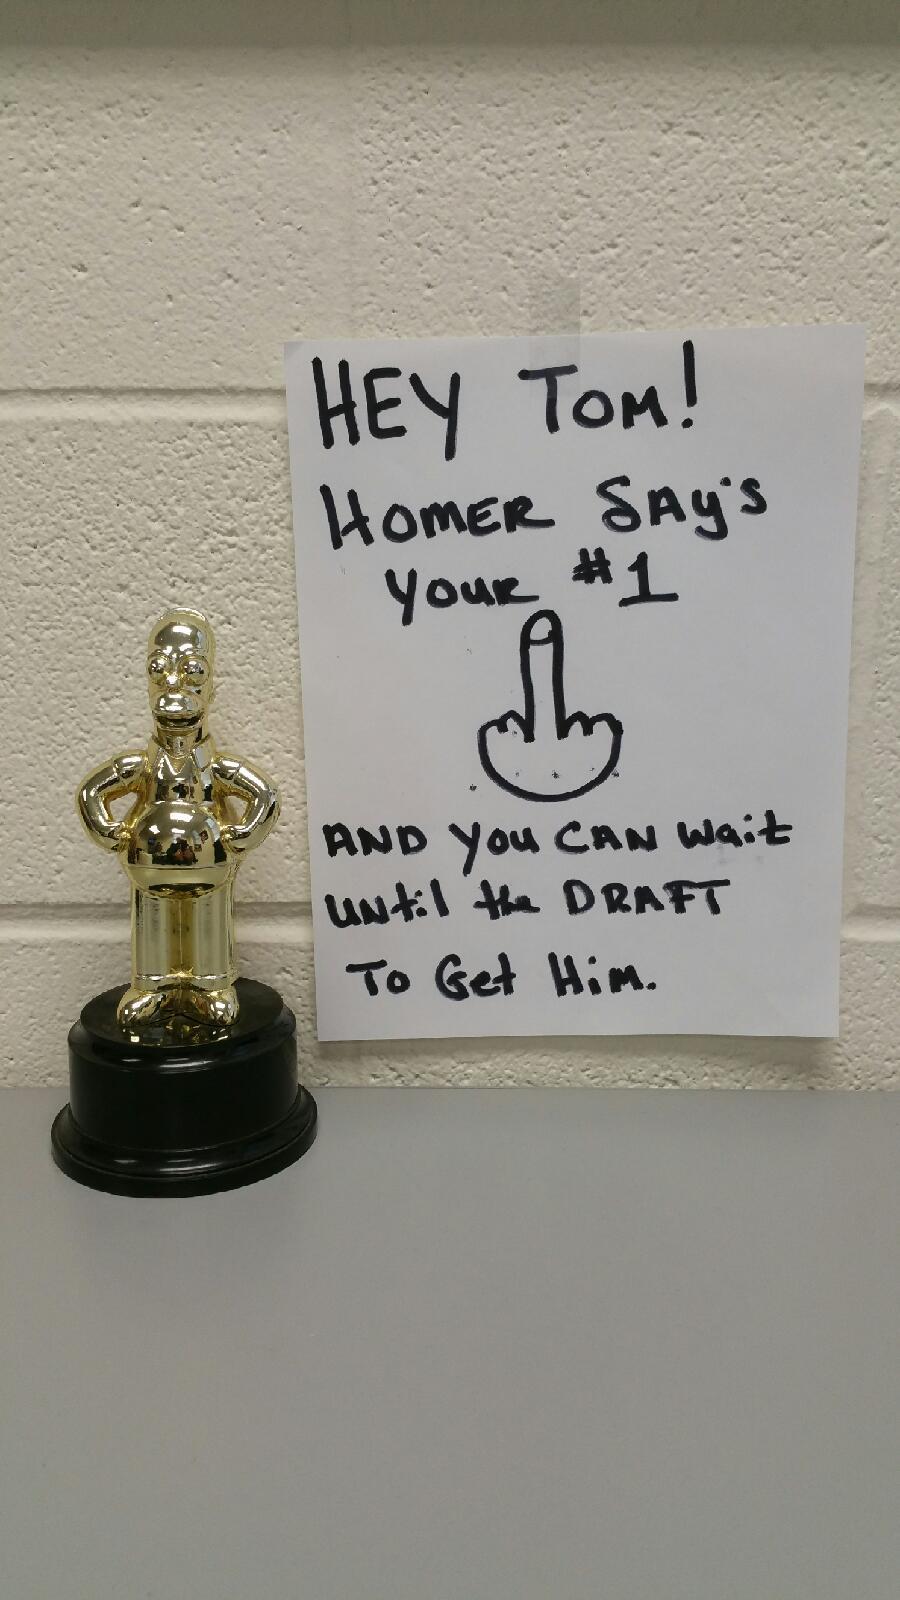 HEY TOM!
HOMER SAY'S
YOUR #1
AND YOU CAN Wait
UNtil the DRAFT
To Get Him.